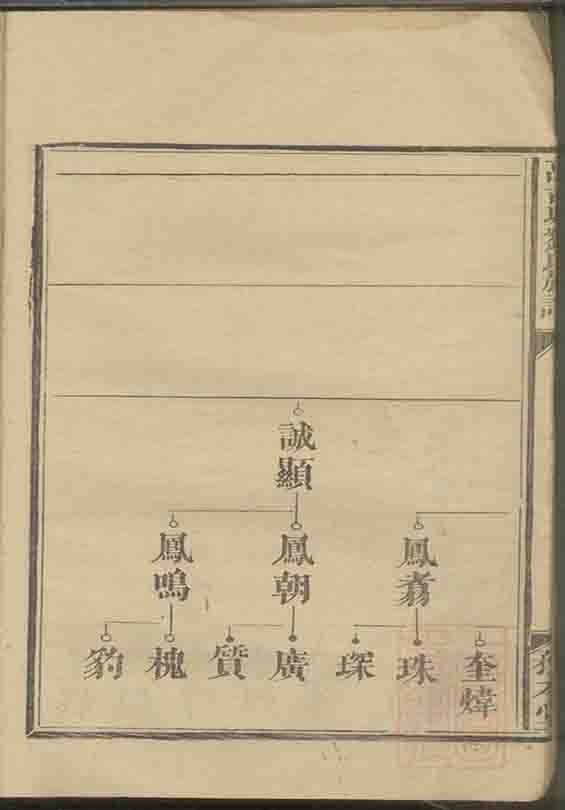 誠顯
鳳翥
鳳朝
鳳鳴
奎煒
珠
琛
廣
質
槐
豹